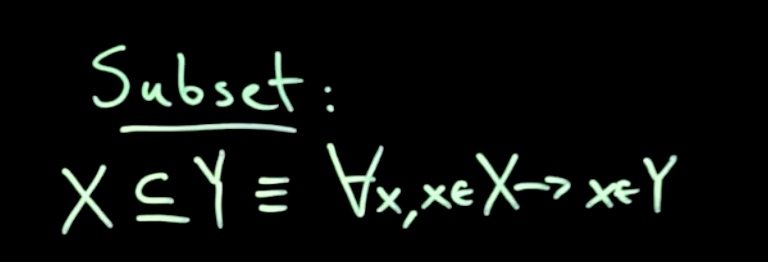 Subset:
X ⊆ Y ≡ ∀x, x∈X → x∈Y